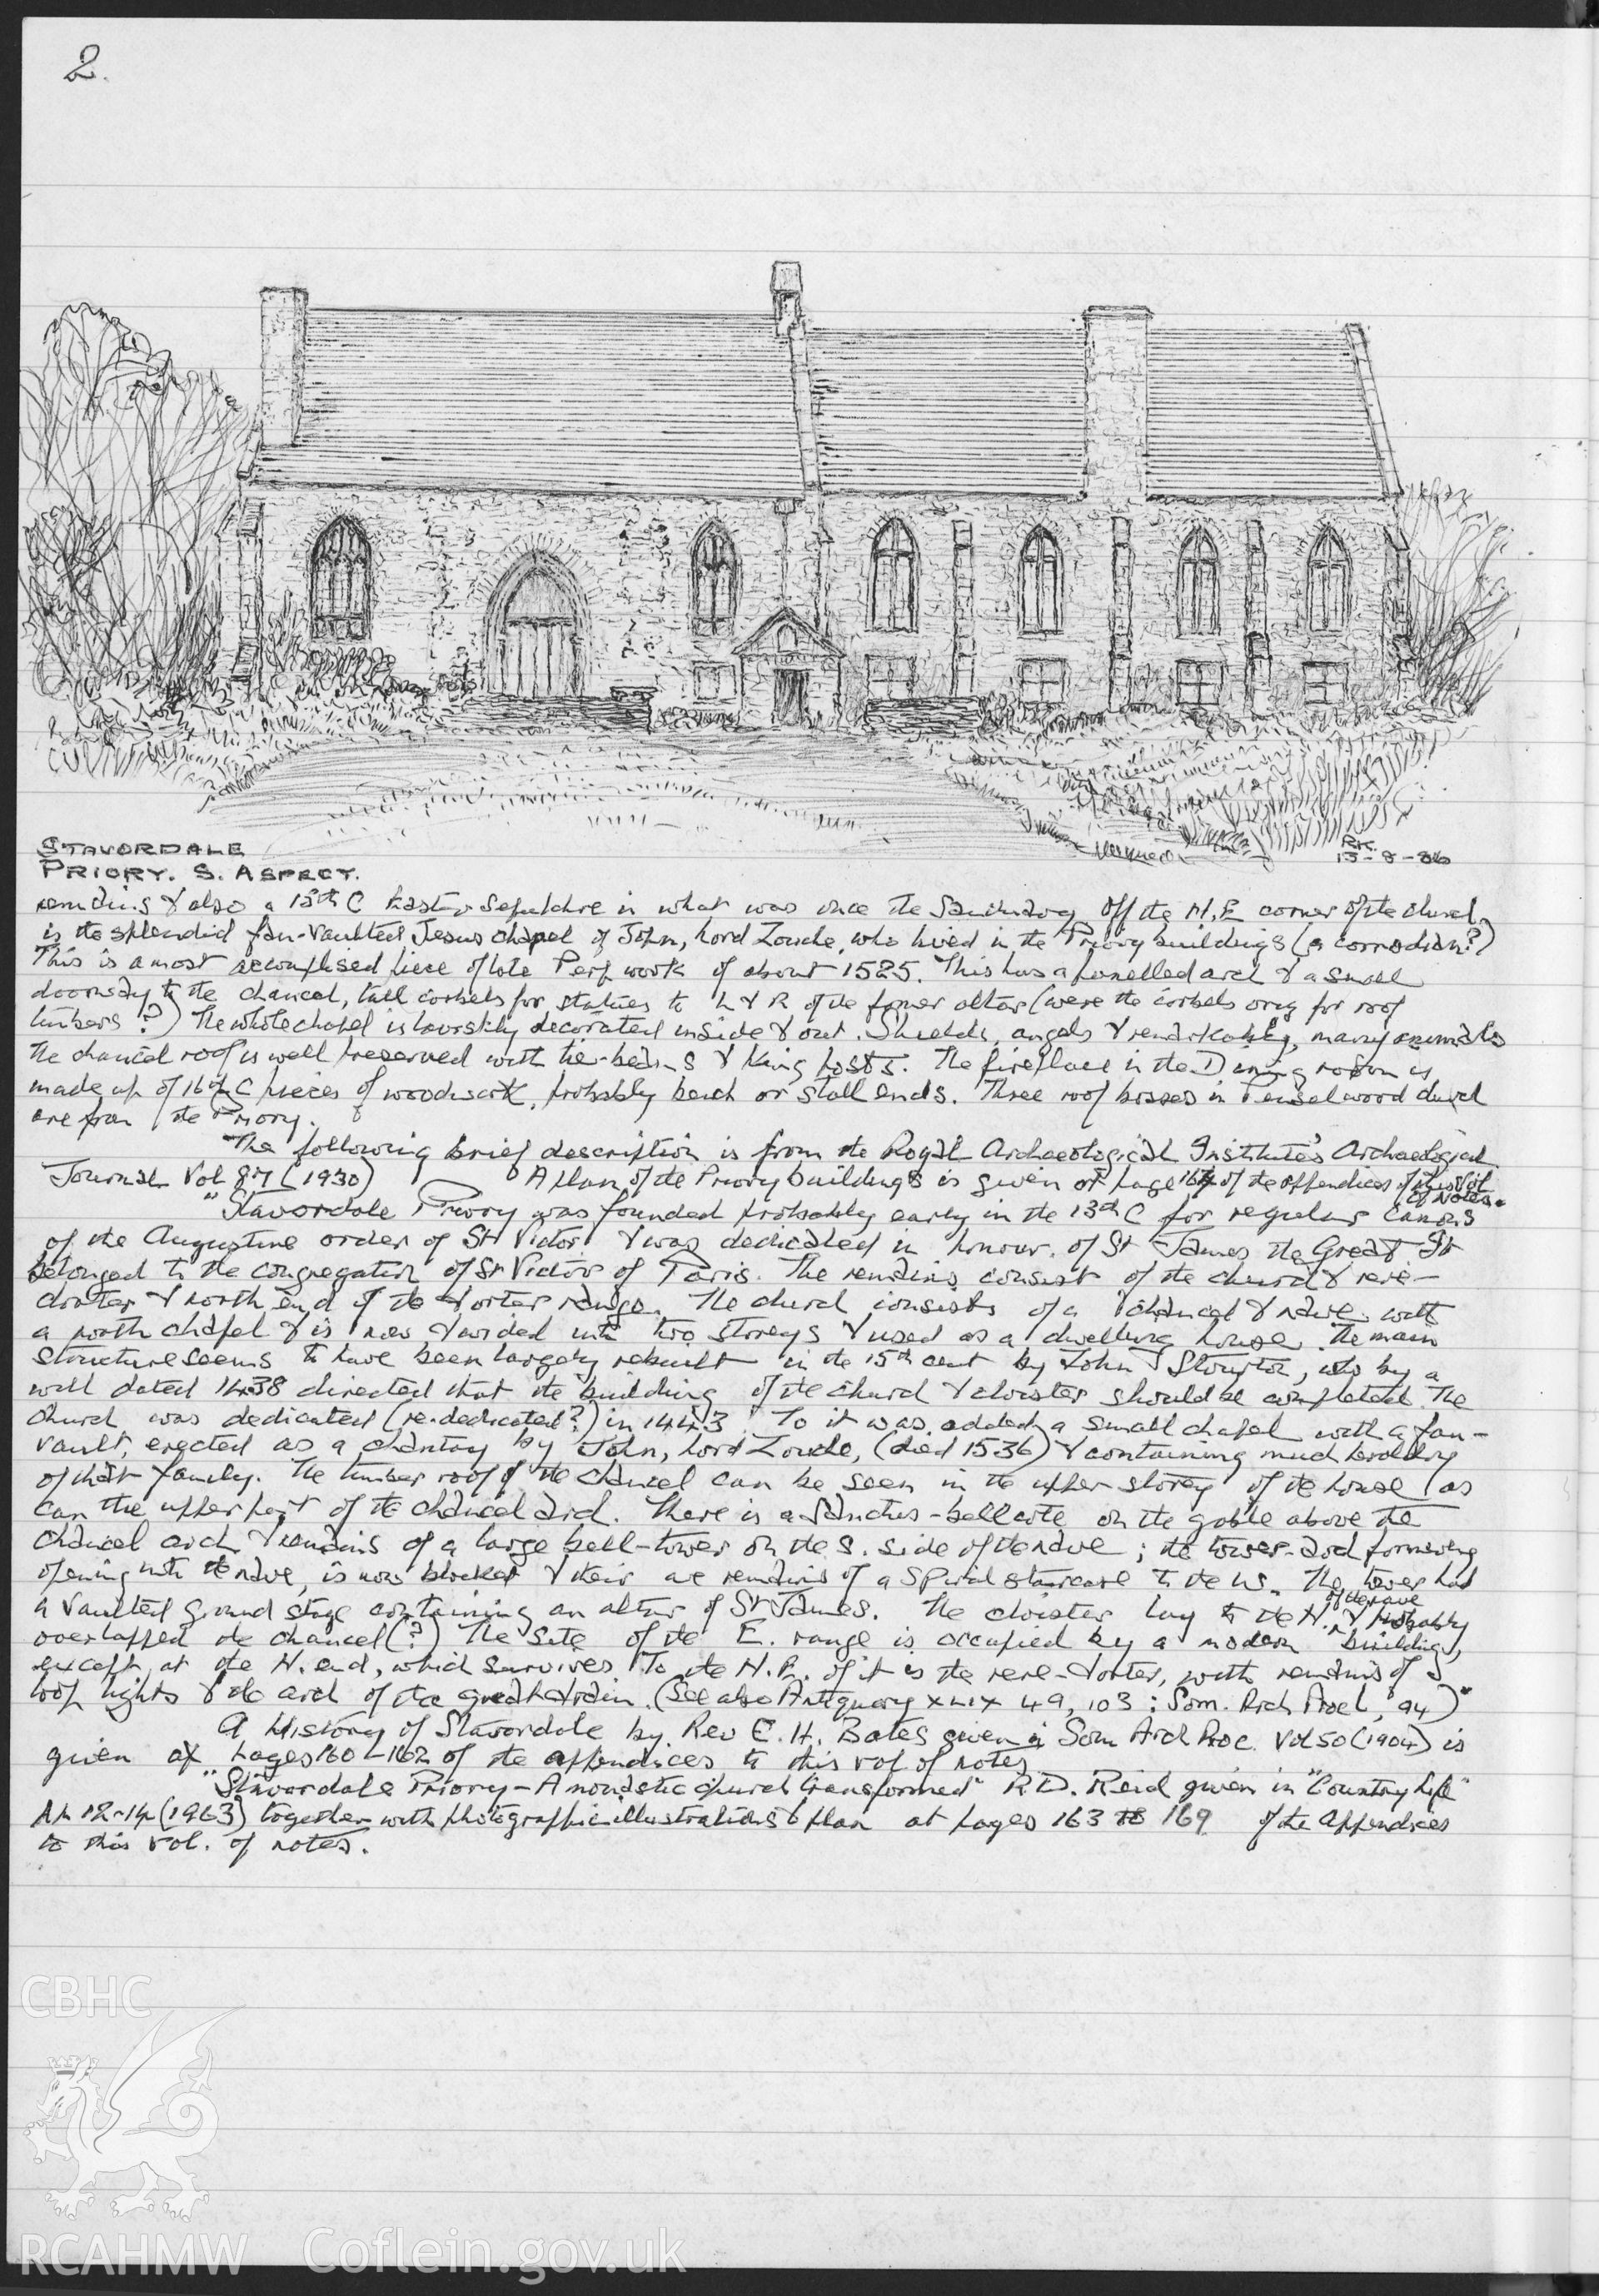 2.
STAVORDALE
PRIORY. S. ASPECT.
RK.
13-8-86
remains & also a 15th C Easter Sepulchre in what was once the Sanctuary. Off the N.E corner of the church
is the splendid fan-vaulted Jesus chapel of John, Lord Zouche, who lived in the Priory buildings (a corrodian?)
This is a most accomplished piece of late Perp work of about 1525. This has a panelled arch & a small
doorway to the chancel, tall corbels for statues to L & R of the former altar (were the corbels orig for roof
timbers?) The whole chapel is lavishly decorated inside & out. Shields, angels & remarkably, many animals
The chancel roof is well preserved with tie-beams & King posts. The fireplace in the Dining room is
made up of 16th C pieces of woodwork, probably bench or stall ends. Three roof bosses in Penselwood church
are from the Priory.
The following brief description is from the Royal Archaeological Institute's Archaeological
Journal Vol 87 (1930) A plan of the Priory buildings is given at page 164 of the appendices of this vol
of notes.
"Stavordale Priory was founded probably early in the 13th C for regular canons
of the Augustine order of St Victor & was dedicated in honour of St James the Great It
belonged to the congregation of St Victor of Paris. The remains consist of the church & rere-
dorter & north end of the dorter range. The church consists of a chancel & nave with
a north chapel & is now divided into two storeys & used as a dwelling house. The main
structure seems to have been largely rebuilt in the 15th cent by John Stourton, who by a
will dated 1438 directed that the building of the church & cloister should be completed. The
church was dedicated (re-dedicated?) in 1443. To it was added a small chapel with a fan-
vault, erected as a chantry by John, Lord Zouche, (died 1536) & containing much heraldry
of that family. The timber roof of the chancel can be seen in the upper storey of the house as
can the upper part of the chancel arch. There is a sanctus-bellcote on the gable above the
chancel arch & remains of a large bell-tower on the S. side of the nave; the tower-arch formerly
opening into the nave, is now blocked & their are remains of a spiral staircase to the W. The tower had
a vaulted ground stage containing an altar of St James. The cloister lay to the N. of the nave & probably
overlapped the chancel (?) The site of the E. range is occupied by a modern building,
except at the N. end, which survives. To the N.E. of it is the rere-dorter, with remains of
loop lights & the arch of the great drain. (See also Antiquary XLIX 49, 103; Som. Arch Proc L, 94)"
A History of Stavordale by Rev E. H. Bates given in Som Arch Proc. Vol 50 (1904) is
given at pages 160-162 of the appendices to this vol of notes
"Stavordale Priory - A monastic church transformed" R.D. Reid given in "Country Life"
12-14 (1963) together with photographic illustrations & plan at pages 163 to 169 of the appendices
to this vol. of notes.
CBHC
RCAHMW Coflein.gov.uk